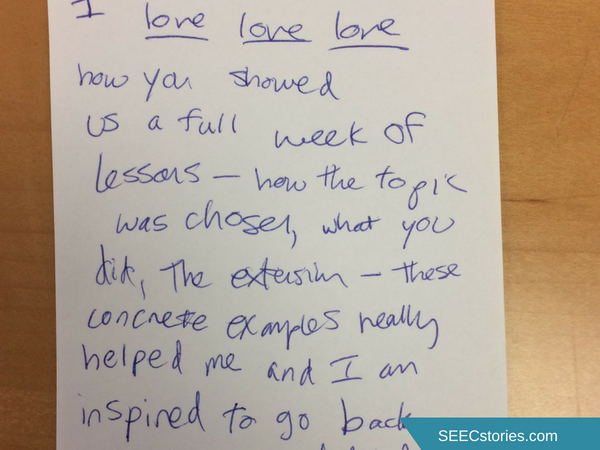 I love love love
how you showed
us a full week of
lessons – how the topic
was chosen, what you
did, the extension – these
concrete examples really
helped me and I am
inspired to go back
SEECstories.com